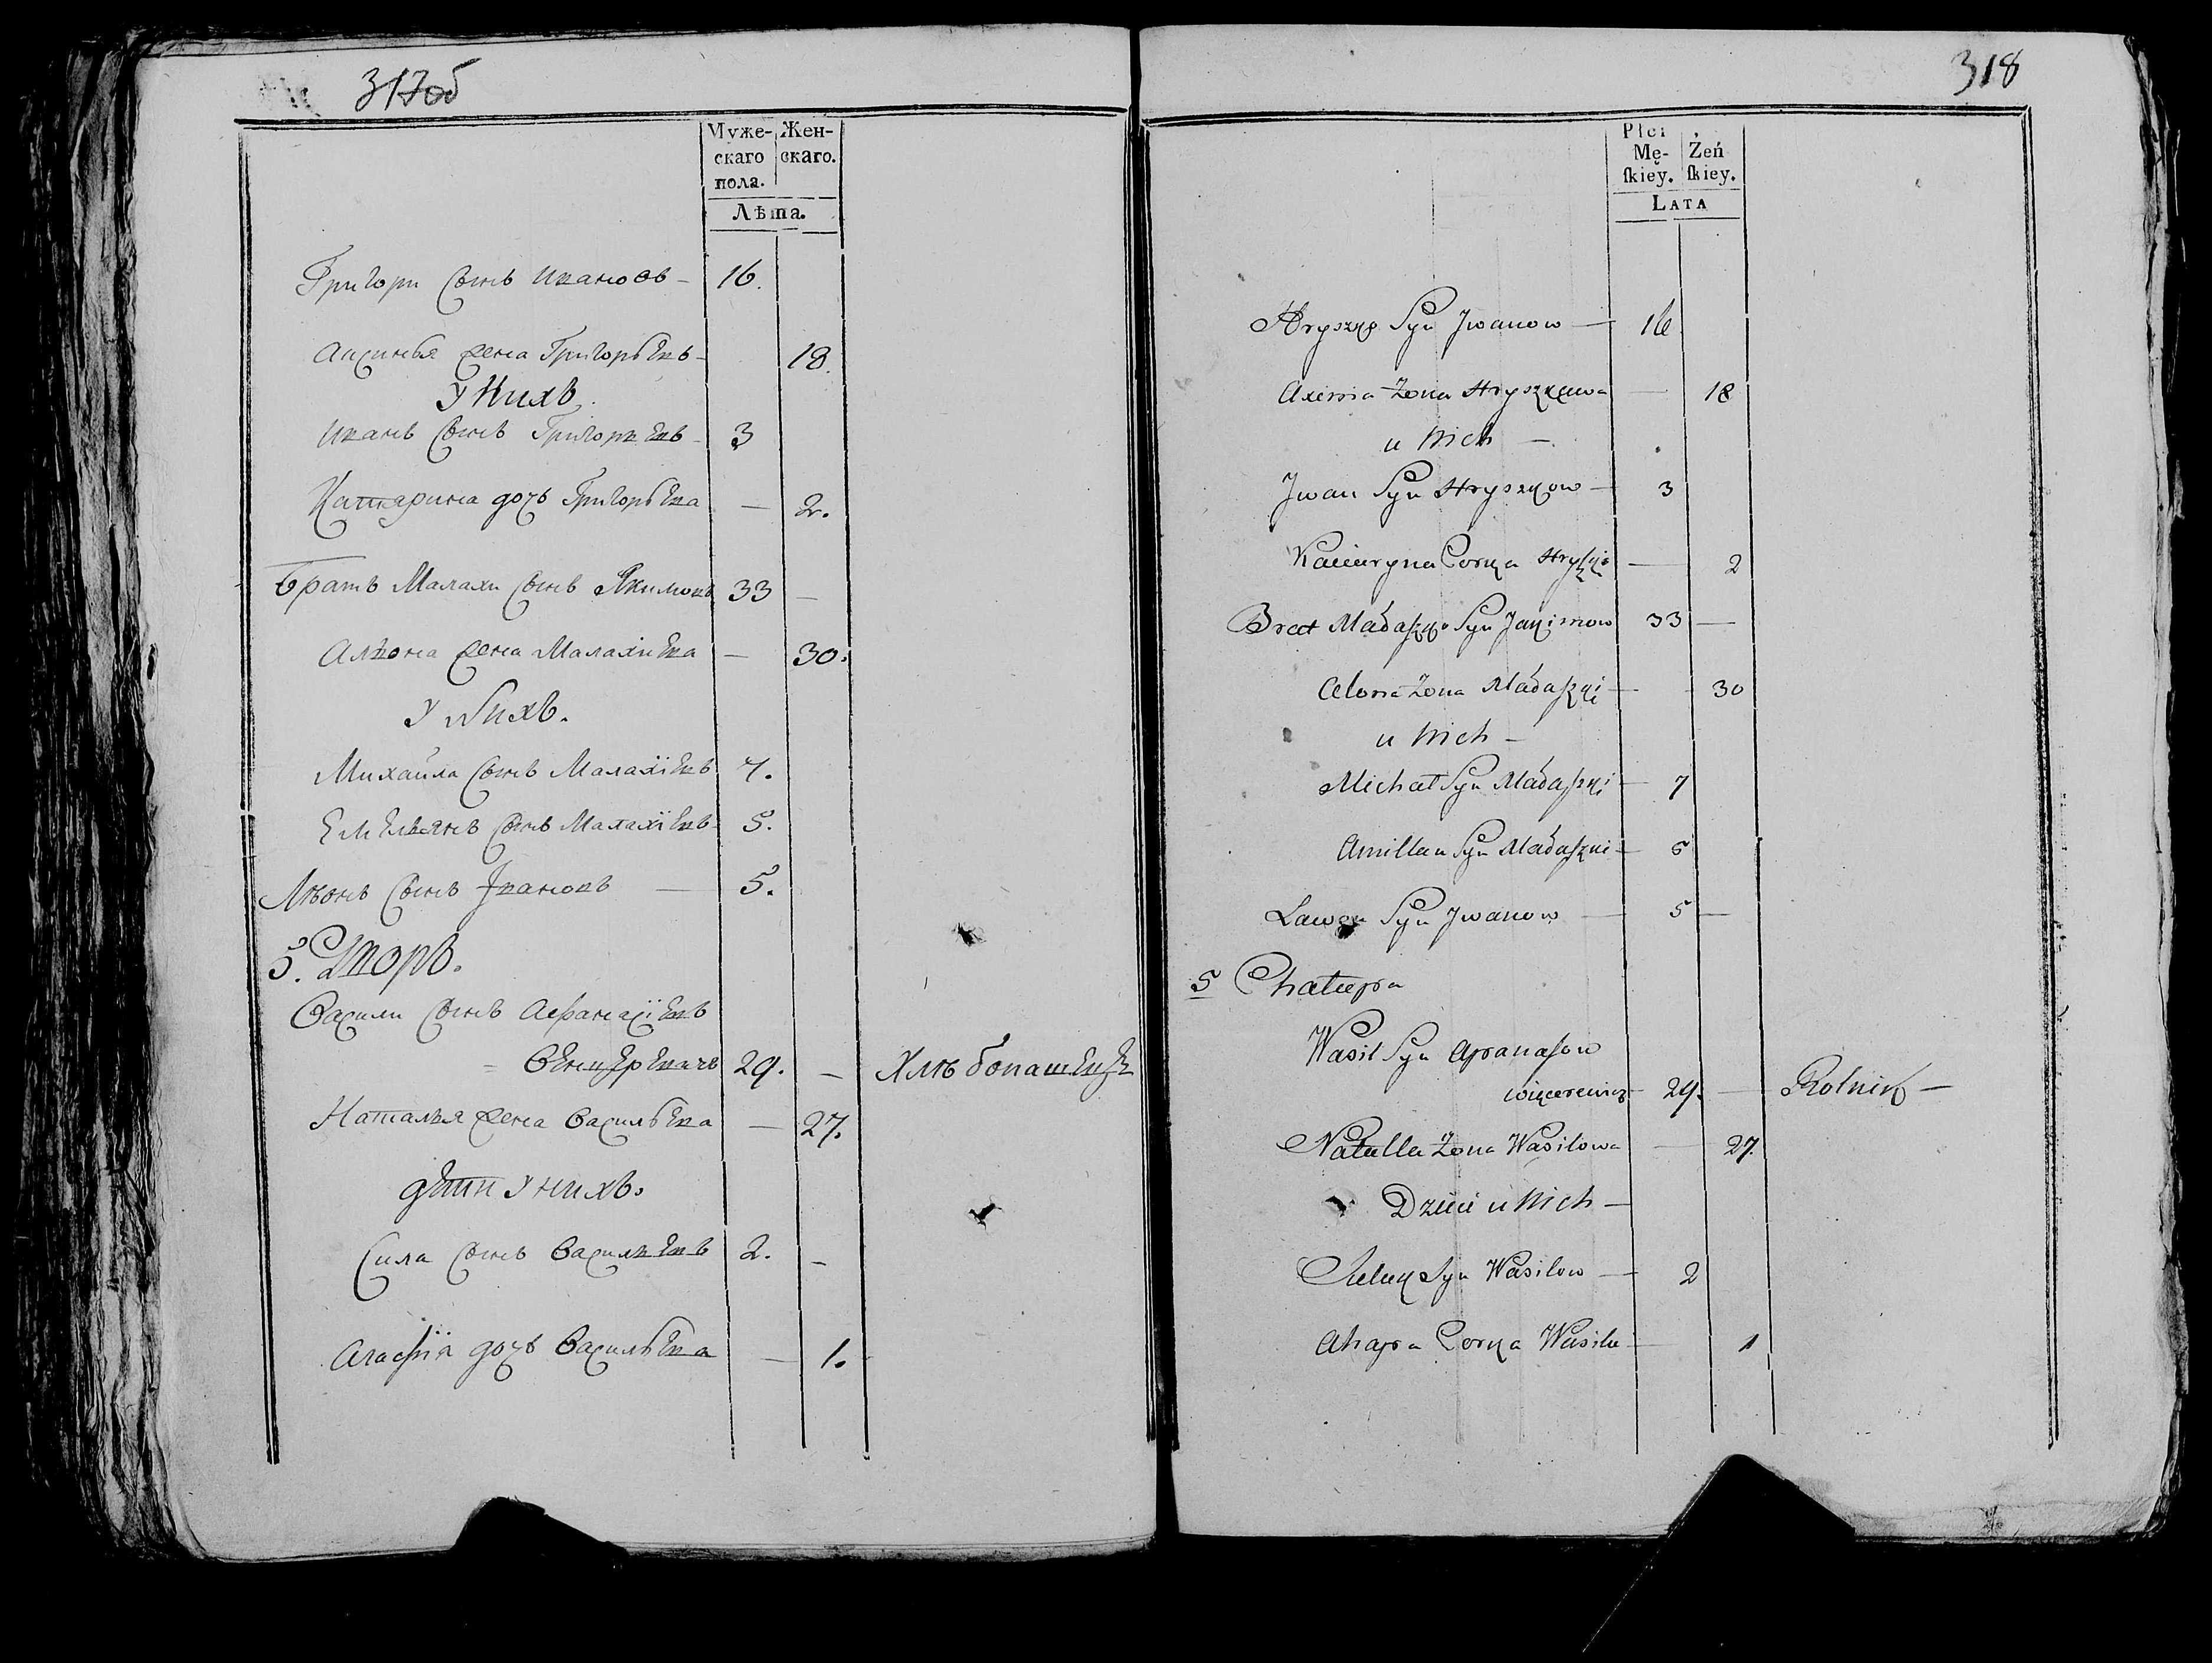 317об
Муже- Жен-
скаго скаго.
пола.
Лѣта.
Григори сынъ Ивановъ - 16.
Аксинья жена Григорьевъ - 18.
У Нихъ.
Иванъ сынъ Григорьевъ - 3
Катарина дочь Григорьева — 2.
Братъ Малахи сынъ Якимовъ 33 —
Алѣона жена Малахиева — 30.
У Нихъ.
Михайла сынъ Малахіевъ 7.
Емельянъ сынъ Малахіевъ 5.
Лѣонъ сынъ Iвановъ — 5.
5. Дворъ.
Васили сынъ Афанасіевъ
= Венцеревичъ 29. — Хлѣбопашецъ
Наталья жена Васильева — 27.
дети у нихъ.
Сила сынъ Васильевъ 2. —
Агафiя дочь Васильева — 1.
318
Płci
Mę- Żeń
ſkiey. ſkiey.
LATA
Hryszko Syn Jwanow — 16
Axinia Zona Hryszkowa — 18
u Nich —
Jwan Syn Hryszkow — 3
Kaciaryna Corka Hryszki — 2
Brat Małaszko Syn Jakimow 33 —
Alona Zona Małaszki — 30
u Nich —
Michał Syn Małaszki — 7
Amillan Syn Małaszki — 5
Syn Jwanow — 5 —
5 Chałupa
Wasil Syn Apanasow
więcerewicz 29. — Rolnik —
Natalla Zona Wasilowa — 27.
Dzieci u Nich —
Syn Wasilow — 2
Ahapa Corka Wasila — 1